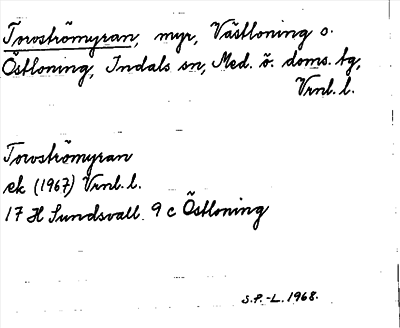 Torströmyran, myr, Västloning o.
Östloning, Indals sn, Med. ö. doms. tg,
Vrnl. l.
Torströmyran
ek (1967) Vrnl. l.
17 H Sundsvall 9 c Östloning
S.P.-L. 1968.